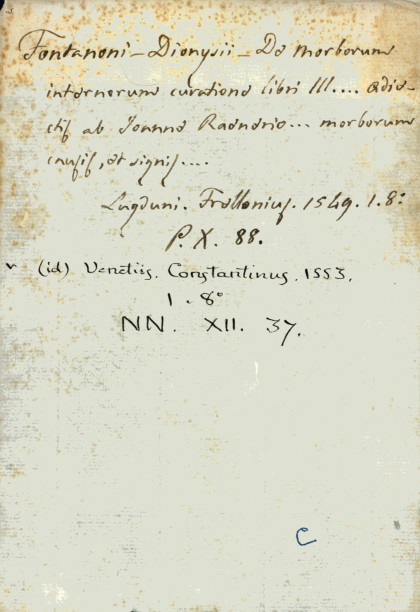 Fontanoni - Dionysii - De morborum
internorum curatione libri III.... adie-
ctis ab Joanne Raenerio... morborum
causis, et signis....
Lugduni. Frellonius. 1549. 1. 8.°
P. X. 88.
(id) Venetiis. Constantinus. 1553.
1. 8°
NN. XII. 37.
C